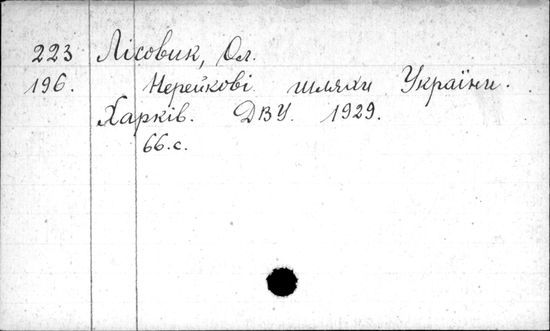 223 Лісовик, Ол.
196. Нерейкові шляхи України.
Харків. ДВУ. 1929.
66.с.